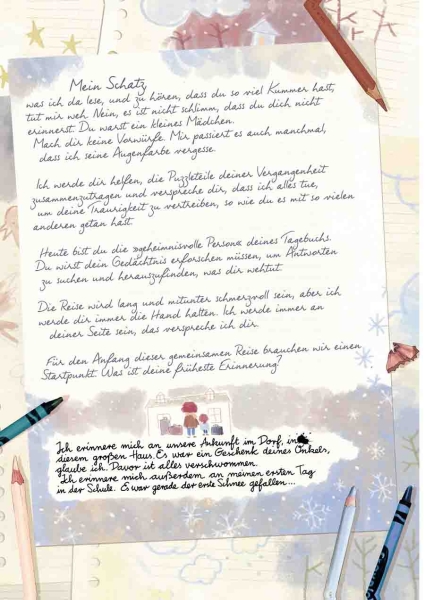 Mein Schatz,
was ich da lese, und zu hören, dass du so viel Kummer hast,
tut mir weh. Nein, es ist nicht schlimm, dass du dich nicht
erinnerst. Du warst ein kleines Mädchen.
Mach dir keine Vorwürfe. Mir passiert es auch manchmal,
dass ich seine Augenfarbe vergesse.
Ich werde dir helfen, die Puzzleteile deiner Vergangenheit
zusammenzutragen und verspreche dir, dass ich alles tue,
um deine Traurigkeit zu vertreiben, so wie du es mit so vielen
anderen getan hast.
Heute bist du die »geheimnisvolle Person« deines Tagebuchs.
Du wirst dein Gedächtnis erforschen müssen, um Antworten
zu suchen und herauszufinden, was dir wehtut.
Die Reise wird lang und mitunter schmerzvoll sein, aber ich
werde dir immer die Hand halten. Ich werde immer an
deiner Seite sein, das verspreche ich dir.
Für den Anfang dieser gemeinsamen Reise brauchen wir einen
Startpunkt. Was ist deine früheste Erinnerung?
Ich erinnere mich an unsere Ankunft im Dorf, in
diesem großen Haus. Es war ein Geschenk deines Onkels,
glaube ich. Davor ist alles verschwommen.
Ich erinnere mich außerdem an meinen ersten Tag
in der Schule. Es war gerade der erste Schnee gefallen...